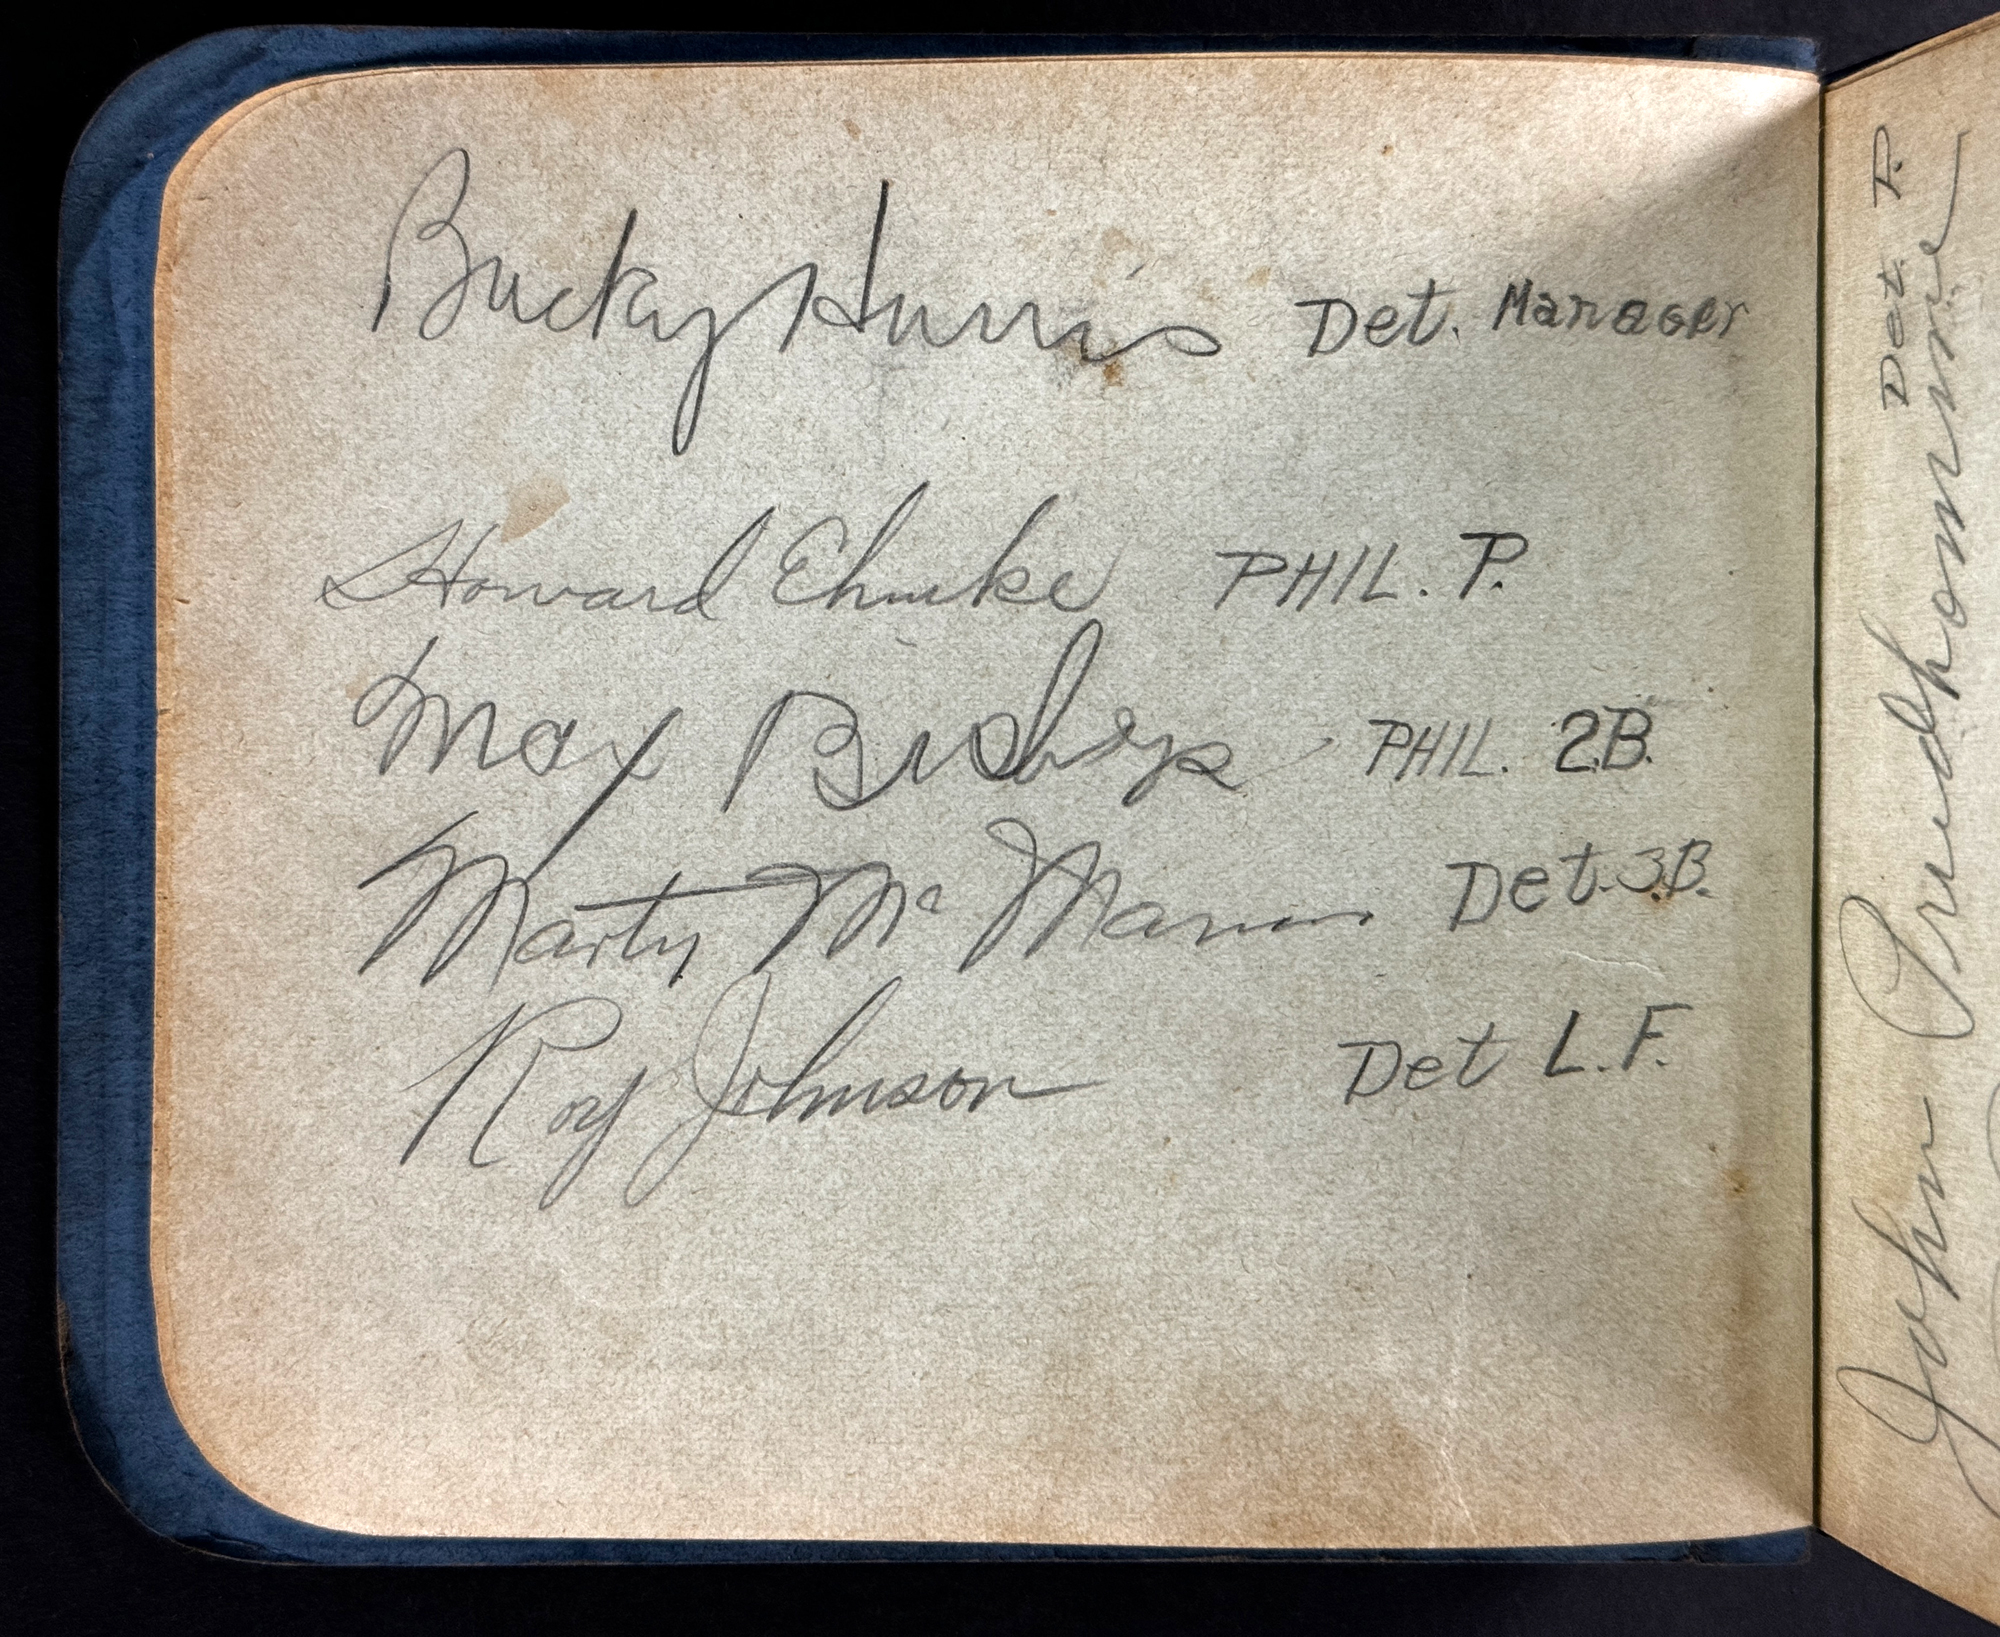 Bucky Harris Det. Manager
Howard Ehmke PHIL. P.
Max Bishop PHIL. 2B.
Marty McManus Det. 3.B.
Roy Johnson Det L.F.
John Prudhomme
Det. P.